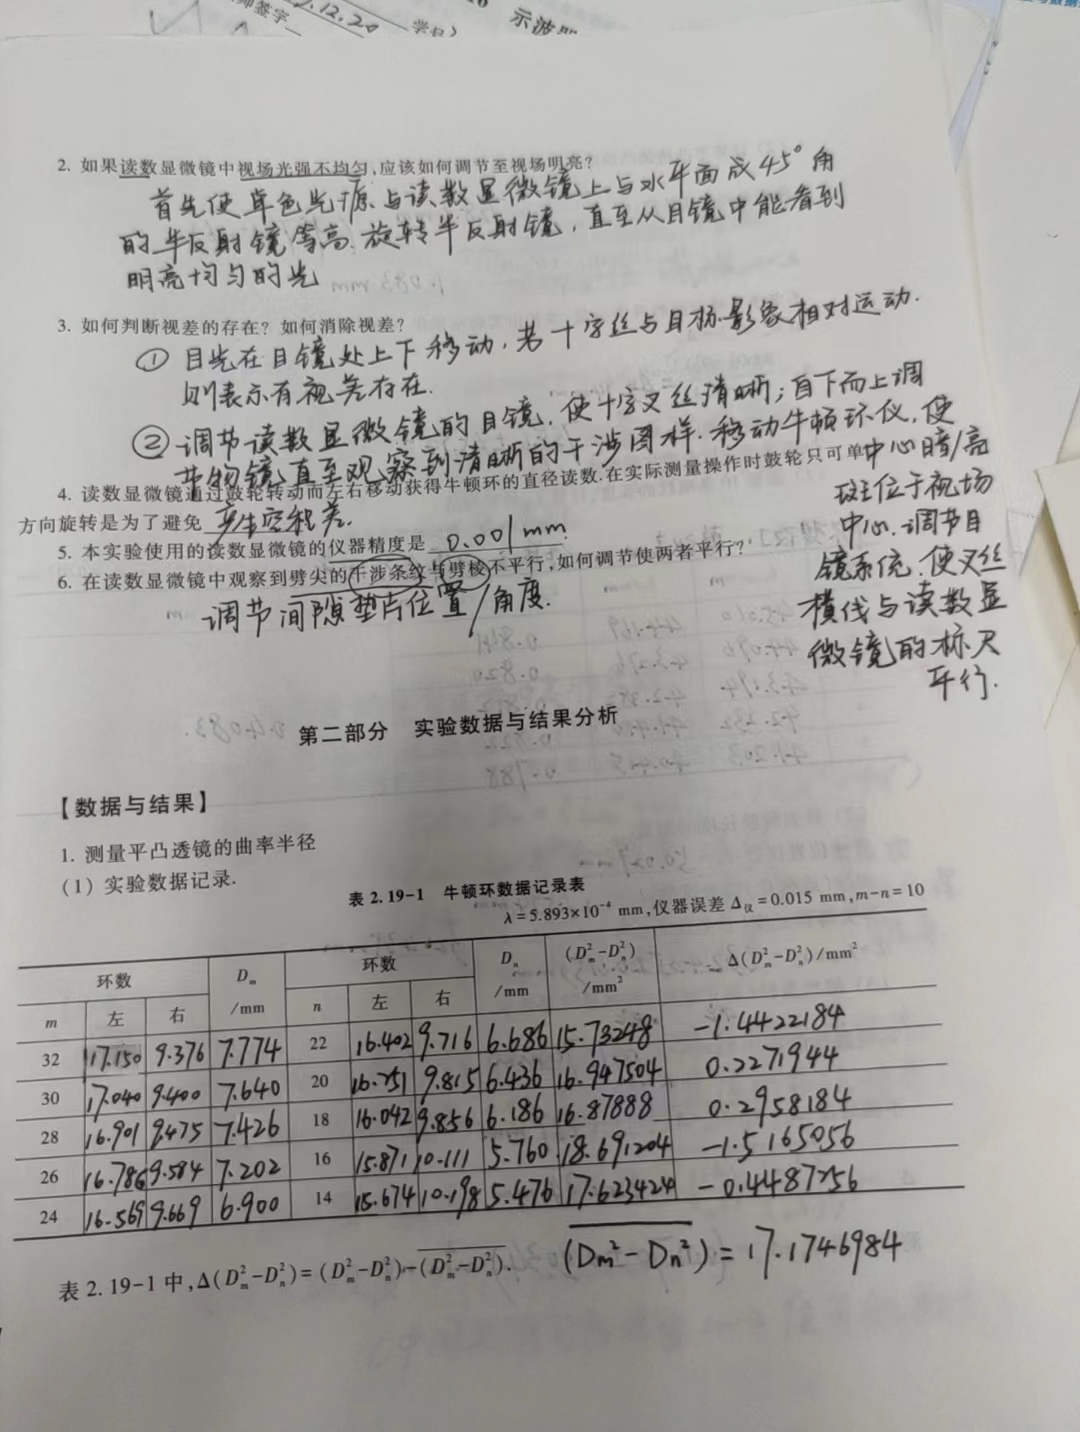 师签字
.12.20
示波
2. 如果读数显微镜中视场光强不均匀,应该如何调节至视场明亮?
首先使单色光源与读数显微镜上与水平面成45°角
的半反射镜等高.旋转半反射镜,直至从目镜中能看到
明亮均匀的光
3. 如何判断视差的存在? 如何消除视差?
① 目光在目镜处上下移动,若十字丝与目标影象相对运动.
则表示有视差存在.
② 调节读数显微镜的目镜,使十字叉丝清晰;自下而上调
节物镜直至观察到清晰的干涉图样.移动牛顿环仪,使
中心暗/亮
斑位于视场
中心.调节目
镜系统,使叉丝
横线与读数显
微镜的标尺
平行.
4. 读数显微镜通过鼓轮转动而左右移动获得牛顿环的直径读数.在实际测量操作时鼓轮只可单
方向旋转是为了避免 产生空程差.
5. 本实验使用的读数显微镜的仪器精度是 0.001mm.
6. 在读数显微镜中观察到劈尖的干涉条纹与劈棱不平行,如何调节使两者平行?
调节间隙垫片位置/角度.
第二部分 实验数据与结果分析
【数据与结果】
1. 测量平凸透镜的曲率半径
(1) 实验数据记录.
表 2.19-1 牛顿环数据记录表
λ=5.893×10⁻⁴ mm,仪器误差 Δ仪=0.015 mm,m-n=10
环数 Dm /mm 环数 Dn /mm (D²m-D²n) /mm² Δ(D²m-D²n)/mm²
m 左 右 n 左 右
32 17.150 9.376 7.774 22 16.402 9.716 6.686 15.73248 -1.4422184
30 17.040 9.400 7.640 20 16.251 9.815 6.436 16.947504 0.2271944
28 16.901 9.475 7.426 18 16.042 9.856 6.186 16.87888 0.2958184
26 16.786 9.584 7.202 16 15.871 10.111 5.760 18.691204 -1.5165056
24 16.569 9.669 6.900 14 15.674 10.198 5.476 17.623424 -0.4487256
表 2.19-1 中,Δ(D²m-D²n)=(D²m-D²n)-(D²m-D²n). (Dm²-Dn²)=17.1746984